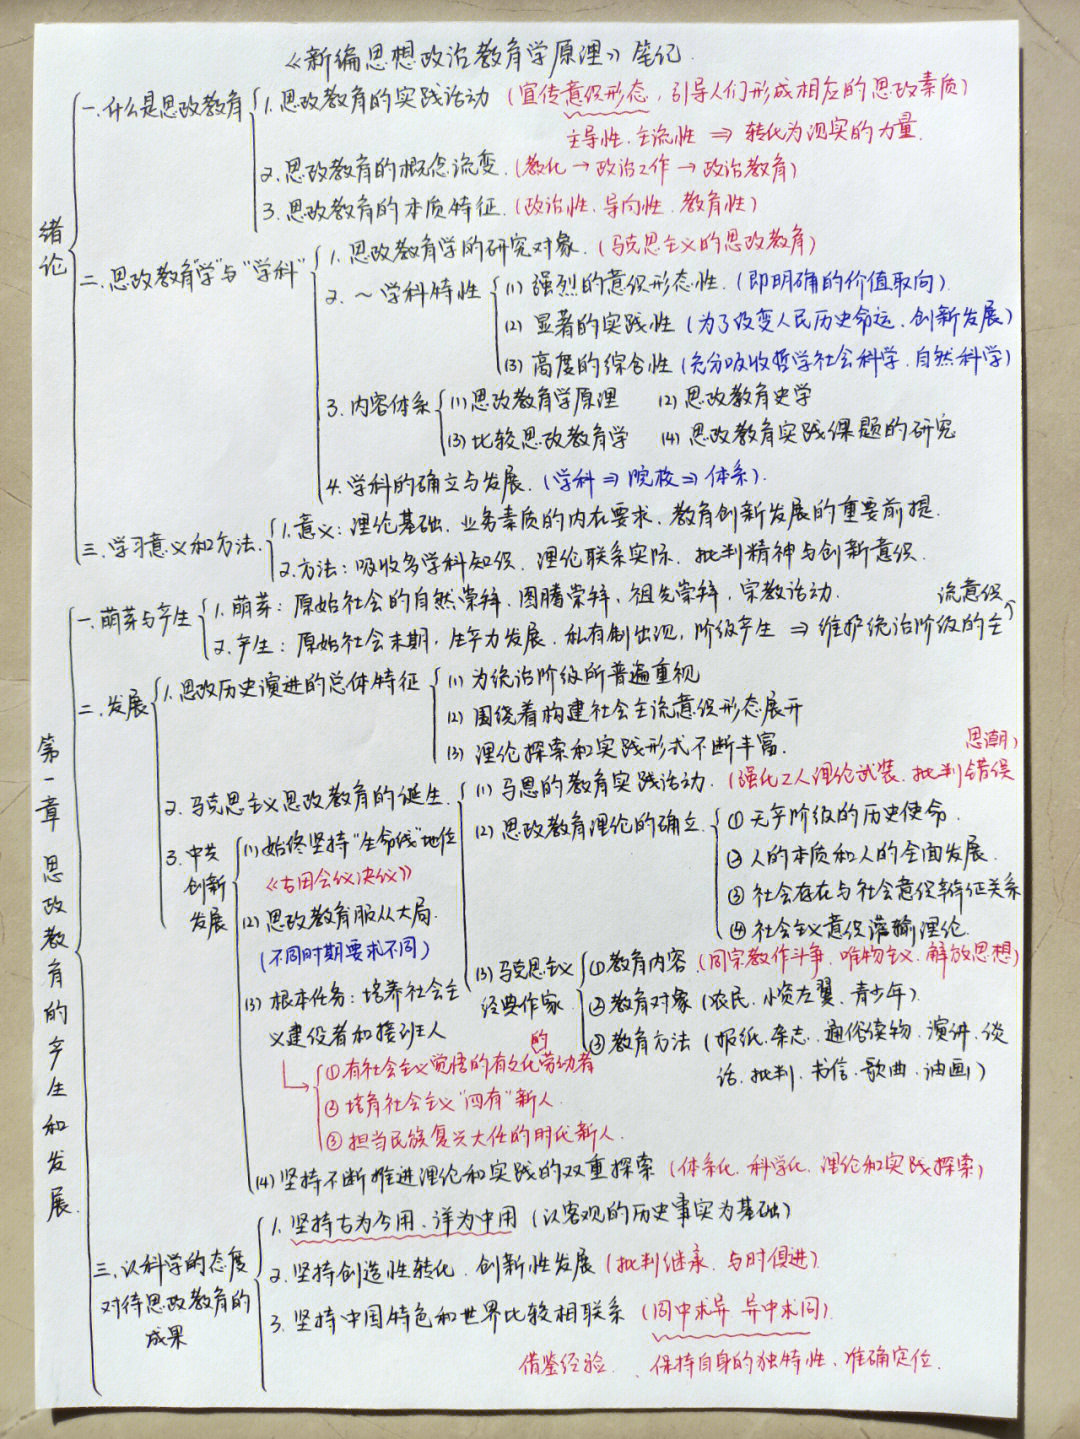 《新编思想政治教育学原理》笔记.
绪论
一.什么是思政教育
1.思政教育的实践活动(宣传意识形态,引导人们形成相应的思政素质)
主导性.主流性 ⇒ 转化为现实的力量.
2.思政教育的概念流变.(教化→政治工作→政治教育)
3.思政教育的本质特征.(政治性.导向性.教育性)
二.思政教育"学"与"学科"
1.思政教育学的研究对象.(马克思主义的思政教育)
2.~学科特性
(1)强烈的意识形态性.(即明确的价值取向).
(2)显著的实践性(为了改变人民历史命运.创新发展)
(3)高度的综合性(充分吸收哲学社会科学.自然科学)
3.内容体系
(1)思政教育学原理 (2)思政教育史学
(3)比较思政教育学 (4)思政教育实践课题的研究
4.学科的确立与发展.(学科⇒院校⇒体系).
三.学习意义和方法.
1.意义:理论基础.业务素质的内在要求.教育创新发展的重要前提.
2.方法:吸收多学科知识.理论联系实际.批判精神与创新意识.
第一章 思政教育的产生和发展
一.萌芽与产生
1.萌芽:原始社会的自然崇拜.图腾崇拜.祖先崇拜,宗教活动.
2.产生:原始社会末期,生产力发展.私有制出现,阶级产生 ⇒ 维护统治阶级的主
流意识
二.发展
1.思政历史演进的总体特征
(1)为统治阶级所普遍重视
(2)围绕着构建社会主流意识形态展开
(3)理论探索和实践形式不断丰富.
2.马克思主义思政教育的诞生.
(1)马恩的教育实践活动.(强化工人理论武装.批判错误
思潮)
(2)思政教育理论的确立.
①无产阶级的历史使命.
②人的本质和人的全面发展.
③社会存在与社会意识辩证关系
④社会主义意识灌输理论.
(3)马克思主义
经典作家
①教育内容.(同宗教作斗争.唯物主义.解放思想)
②教育对象(农民.小资左翼.青少年).
③教育方法(报纸.杂志.通俗读物.演讲.谈
话.批判.书信.歌曲.油画)
3.中共
创新
发展
(1)始终坚持"生命线"地位
《古田会议决议》
(2)思政教育服从大局.
(不同时期要求不同)
(3)根本任务:培养社会主
义建设者和接班人
①有社会主义觉悟的有文化的劳动者
②培育社会主义"四有"新人.
③担当民族复兴大任的时代新人.
(4)坚持不断推进理论和实践的双重探索(体系化.科学化.理论和实践探索)
三.以科学的态度
对待思政教育的
成果
1.坚持古为今用.洋为中用(以客观的历史事实为基础)
2.坚持创造性转化.创新性发展(批判继承.与时俱进)
3.坚持中国特色和世界比较相联系(同中求异 异中求同).
借鉴经验. .保持自身的独特性.准确定位.